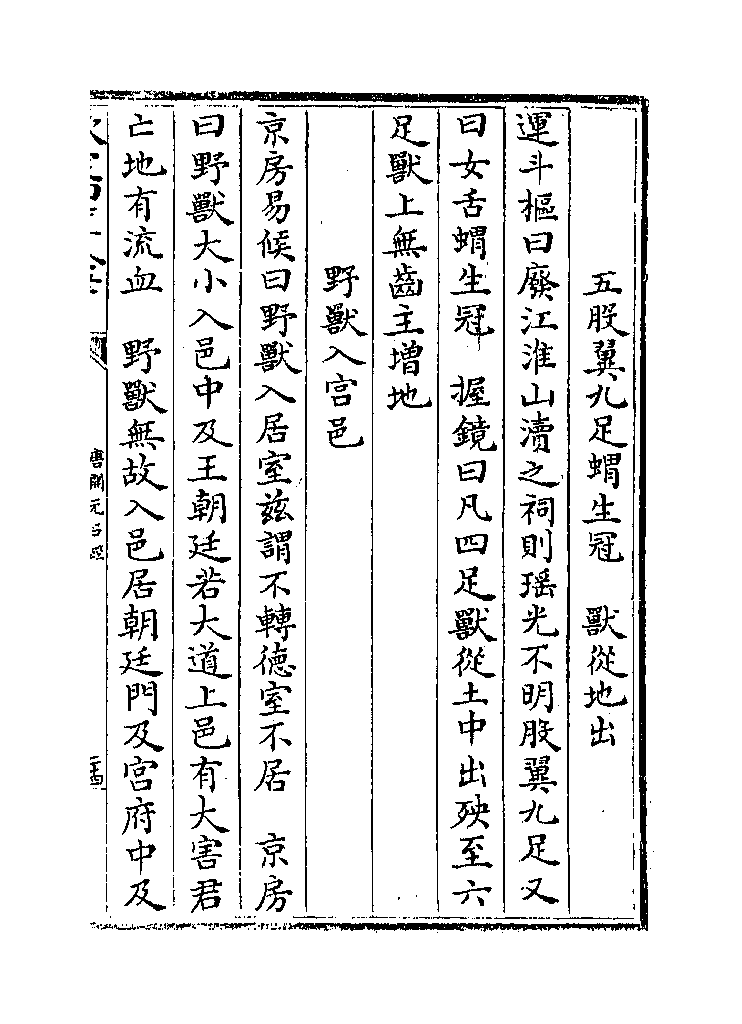 五股翼九足蝟生冠　獸從地出
運斗樞曰廢江淮山瀆之祠則瑶光不明股翼九足又
曰女舌蝟生冠　握鏡曰凡四足獸從土中出殃至六
足獸上無齒主增地
野獸入宫邑
京房易候曰野獸入居室兹謂不轉徳室不居　京房
曰野獸大小入邑中及王朝廷若大道上邑有大害君
亡地有流血　野獸無故入邑居朝廷門及宫府中及
唐開元占經